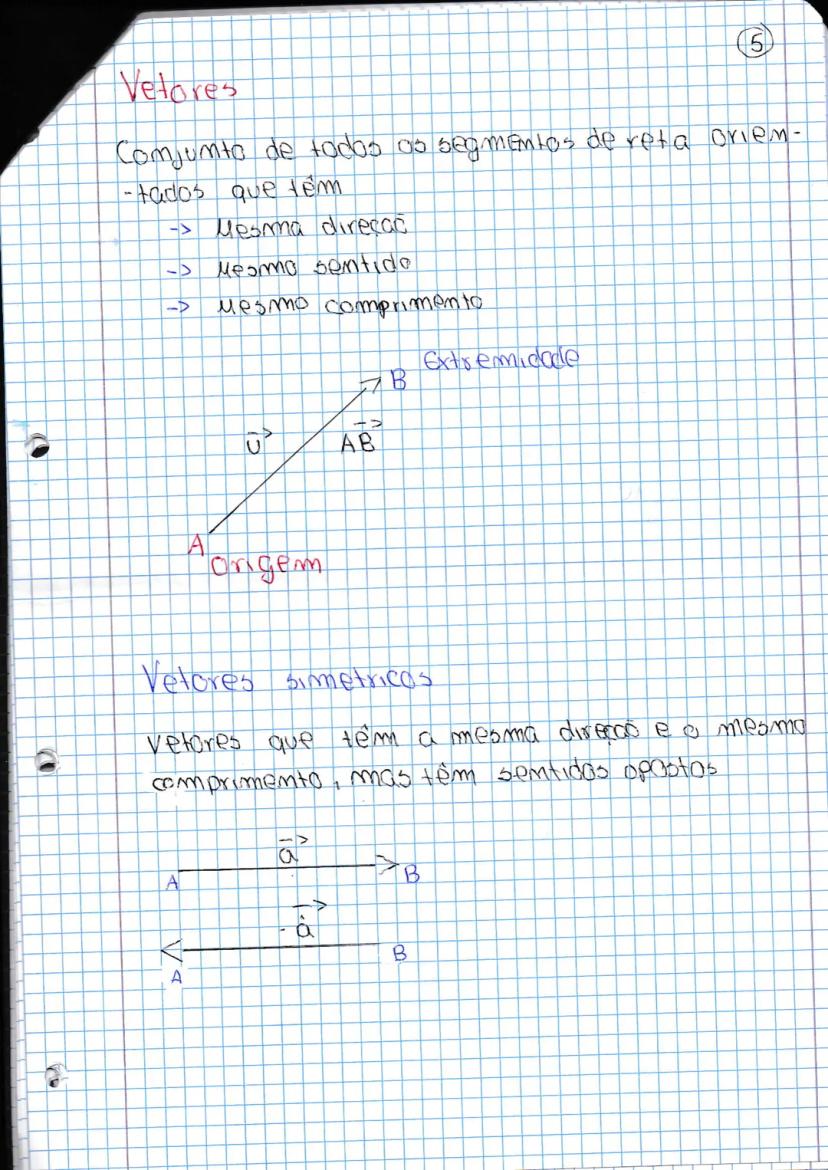 5
Vetores
Conjunto de todos os segmentos de reta orien-
-tados que têm
-> Mesma direção
-> Mesmo sentido
-> Mesmo comprimento
B Extremidade
u→
AB→
A origem
Vetores simetricos
Vetores que têm a mesma direção e o mesmo
comprimento, mas têm sentidos opostos
a→
A B
-a→
A B